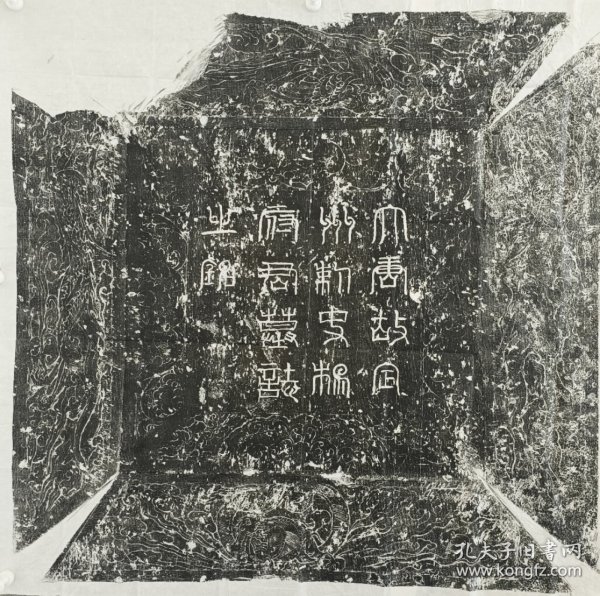 大唐故定
州刺史楊
府君墓誌
之銘
孔夫子旧书网
www.kongfz.com